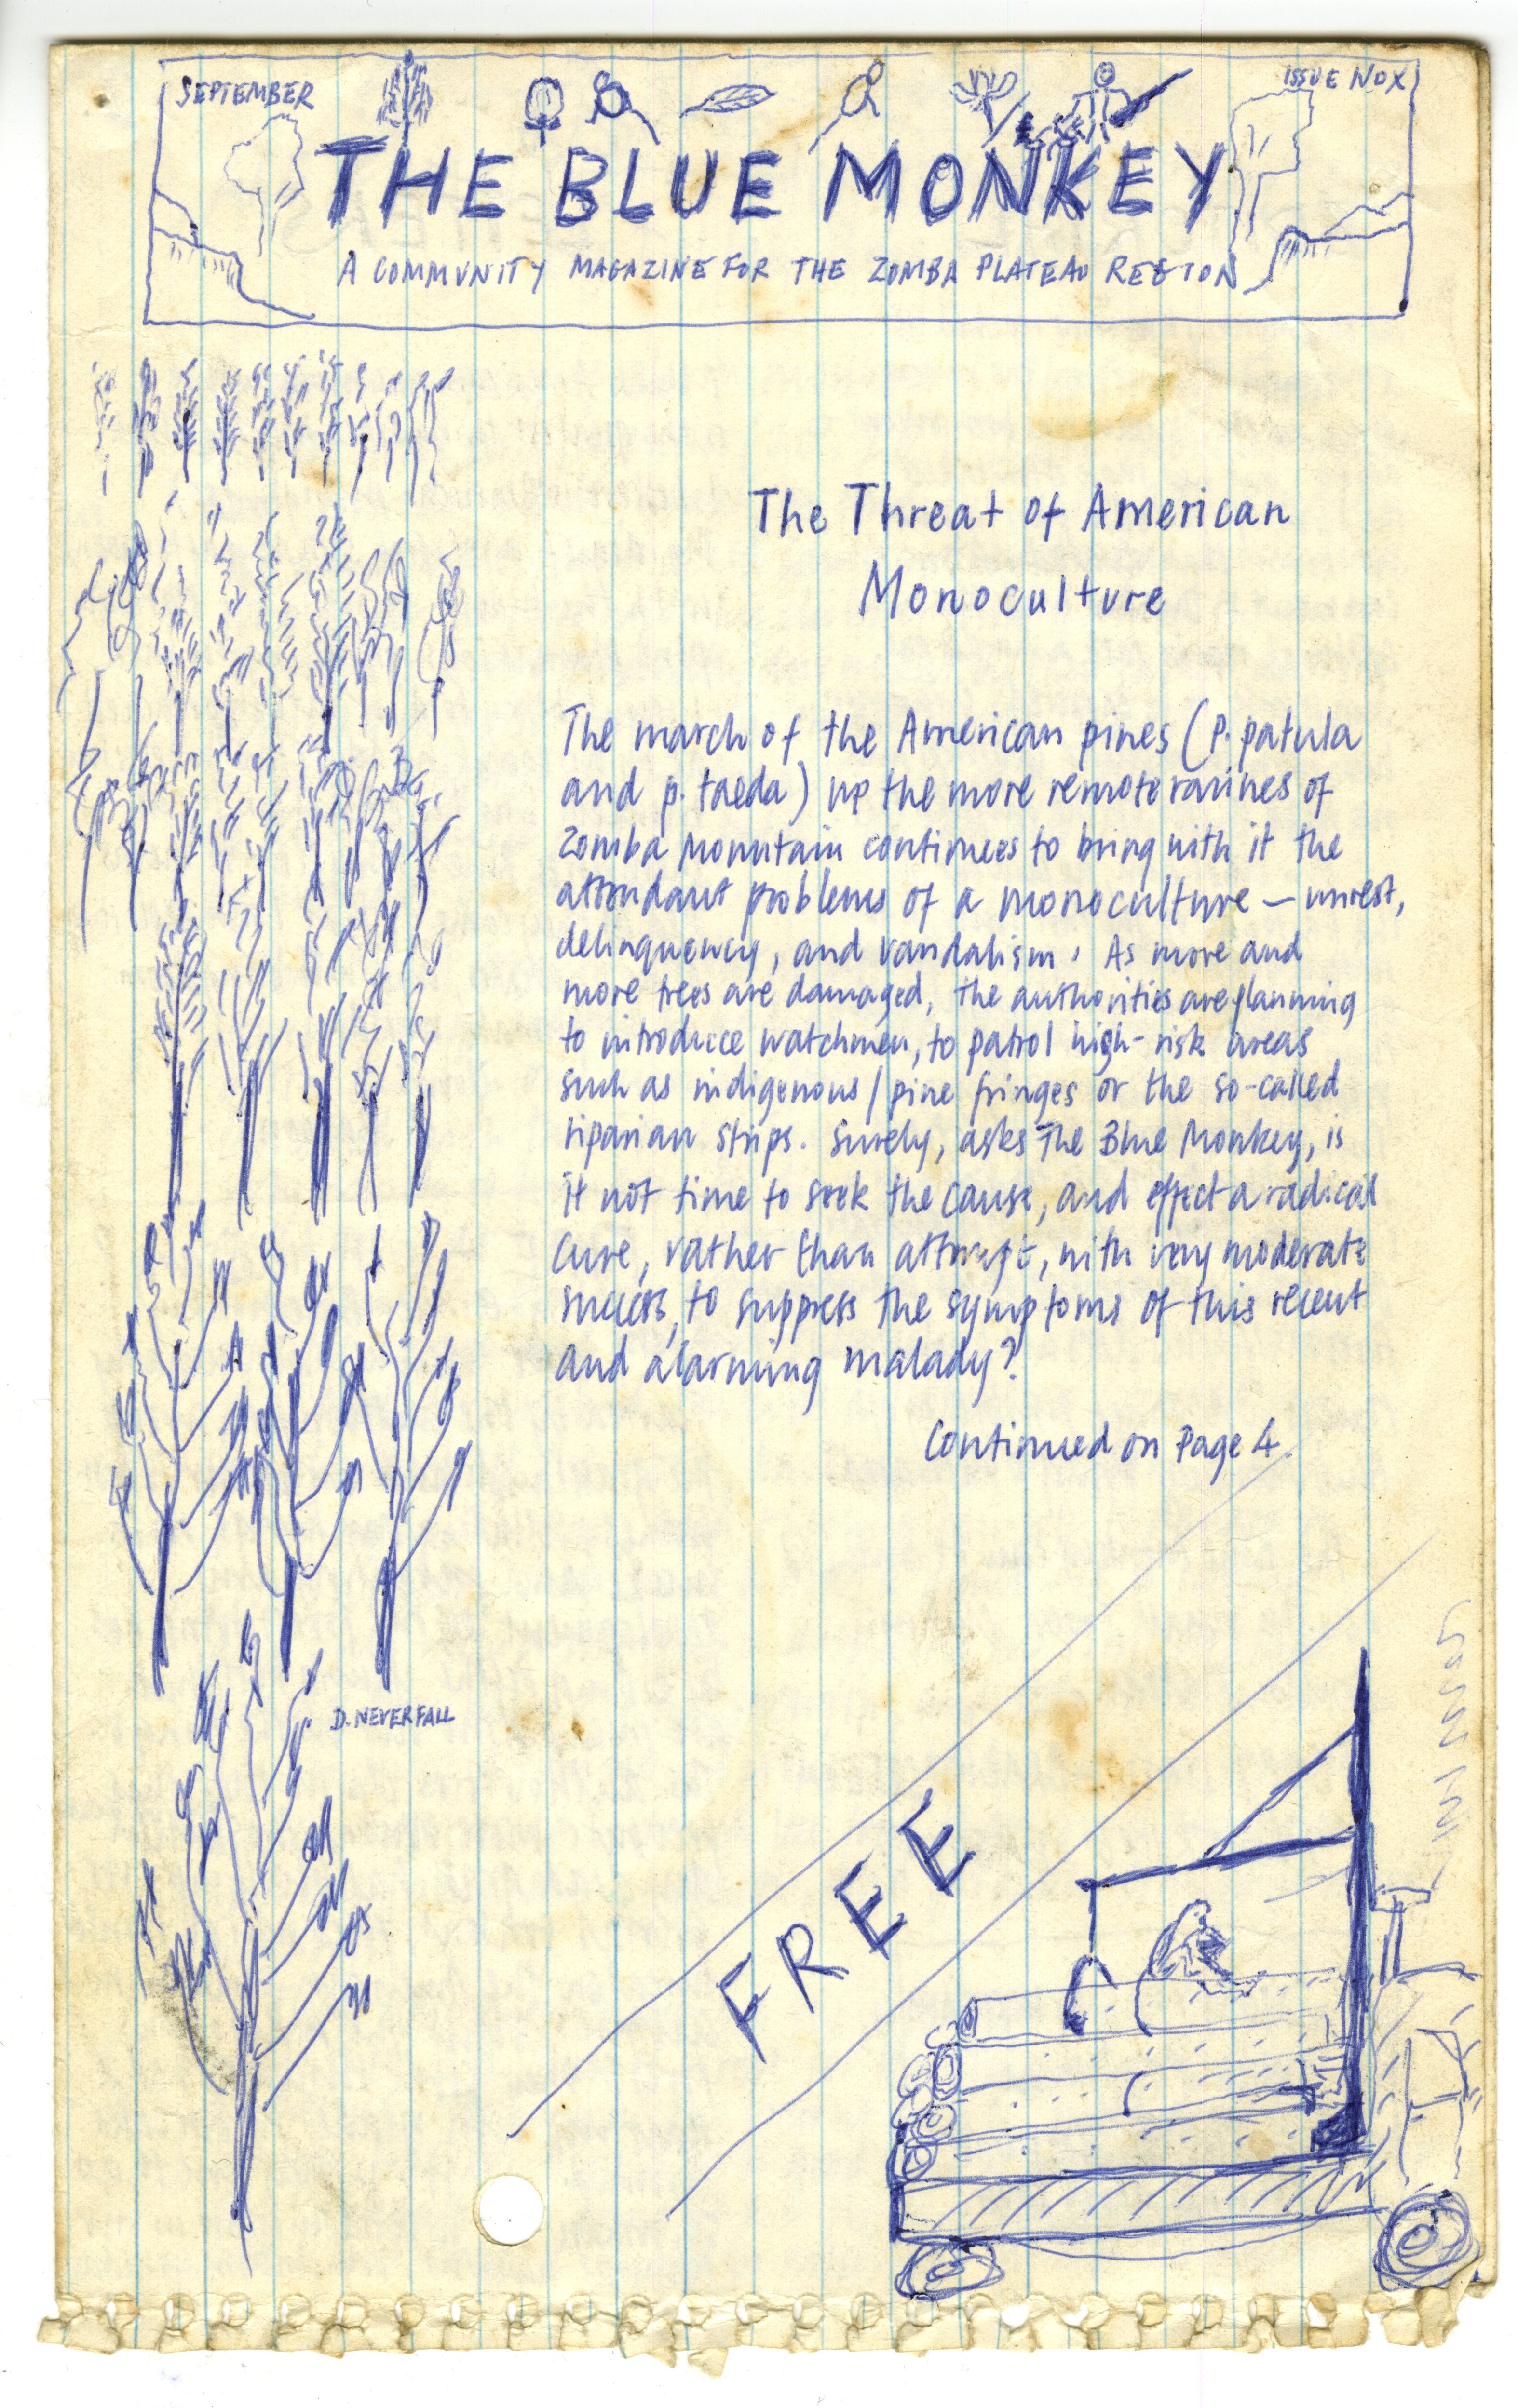 SEPTEMBER
ISSUE NO X
THE BLUE MONKEY
A COMMVNITY MAGAZINE FOR THE ZOMBA PLATEAU REGION
The Threat of American
Monoculture
The march of the American pines (P. patula
and p. taeda) up the more remote ravines of
Zomba Mountain continues to bring with it the
attendant problems of a monoculture – unrest,
delinquency, and vandalism. As more and
more trees are damaged, the authorities are planning
to introduce watchmen, to patrol high-risk areas
such as indigenous/pine fringes or the so-called
riparian strips. Surely, asks The Blue Monkey, is
it not time to seek the cause, and effect a radical
cure, rather than attempt, with very moderate
success, to suppress the symptoms of this recent
and alarming malady?
Continued on Page 4.
D. NEVERFALL
FREE